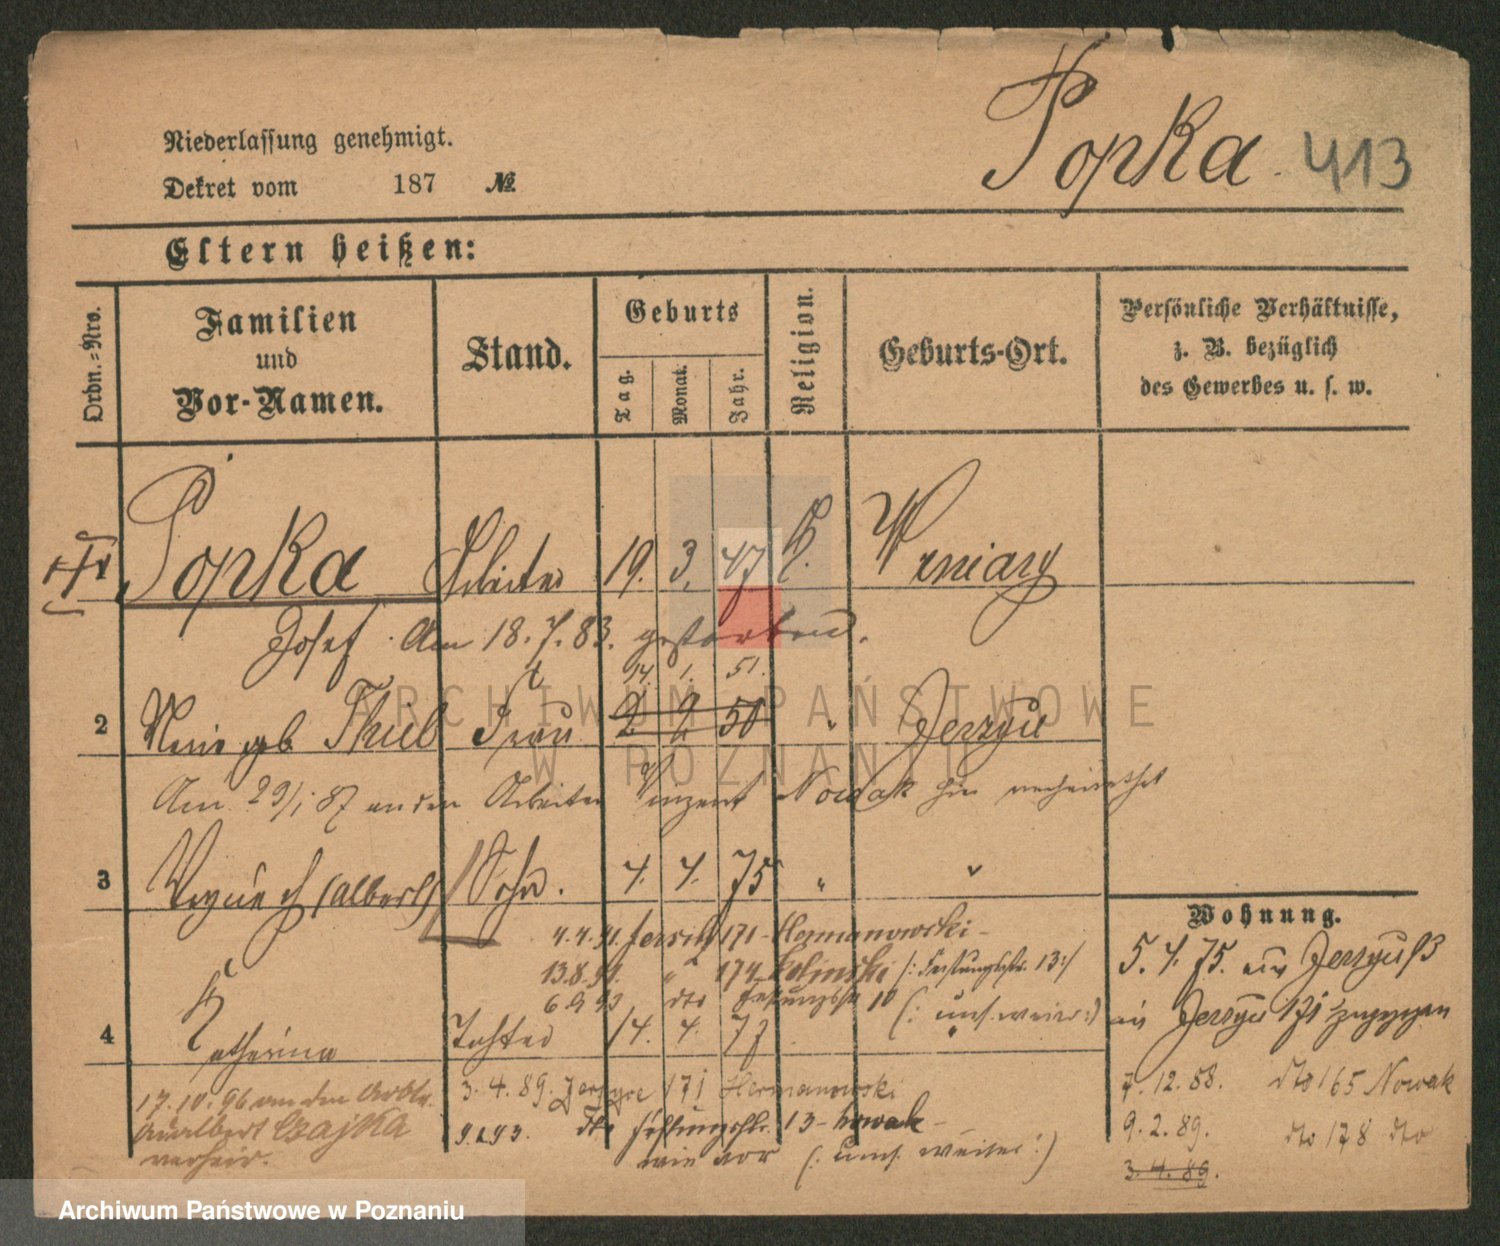 Popka 413
Niederlassung genehmigt.
Dekret vom 187 №
Eltern heißen:
Ordn.=Nro.
Familien
und
Vor-Namen.
Stand.
Geburts
Tag.
Monat.
Jahr.
Religion.
Geburts-Ort.
Persönliche Verhältnisse,
z. B. bezüglich
des Gewerbes u. s. w.
Popka Arbeiter 19. 3. 47 K.
Josef Am 18. 7. 83. gestorben.
14. 1. 51.
2 geb Thiel Frau 2 2 50 " Jerzyce
Am 29/1 87 an den Arbeiter Vinzent Nowak hier verheirathet
3 (Albert) Sohn. 4. 4. 75 " "
Wohnung.
4.4.91. Jersitz 171 Hermanowski
5. 4. 75. aus
13.8.91. " 174 13:/
6.9.93 dto 10 (: umst. weiter :)
4 Katharina Tochter 14. 4. 77 "
in Jerzyce 171 zugezogen
17.10.96 an den Arbtr. 3. 4. 89. Jerzyce 171 Hermanowski
7. 12. 88. dto 165 Nowak
Adalbert Czajka
verheir.
dto 13 Nowak
9. 2. 89. dto 178 dto
wie vor (: umst. weiter :)
3. 4. 89.
ARCHIWUM PAŃSTWOWE
W POZNANIU
Archiwum Państwowe w Poznaniu